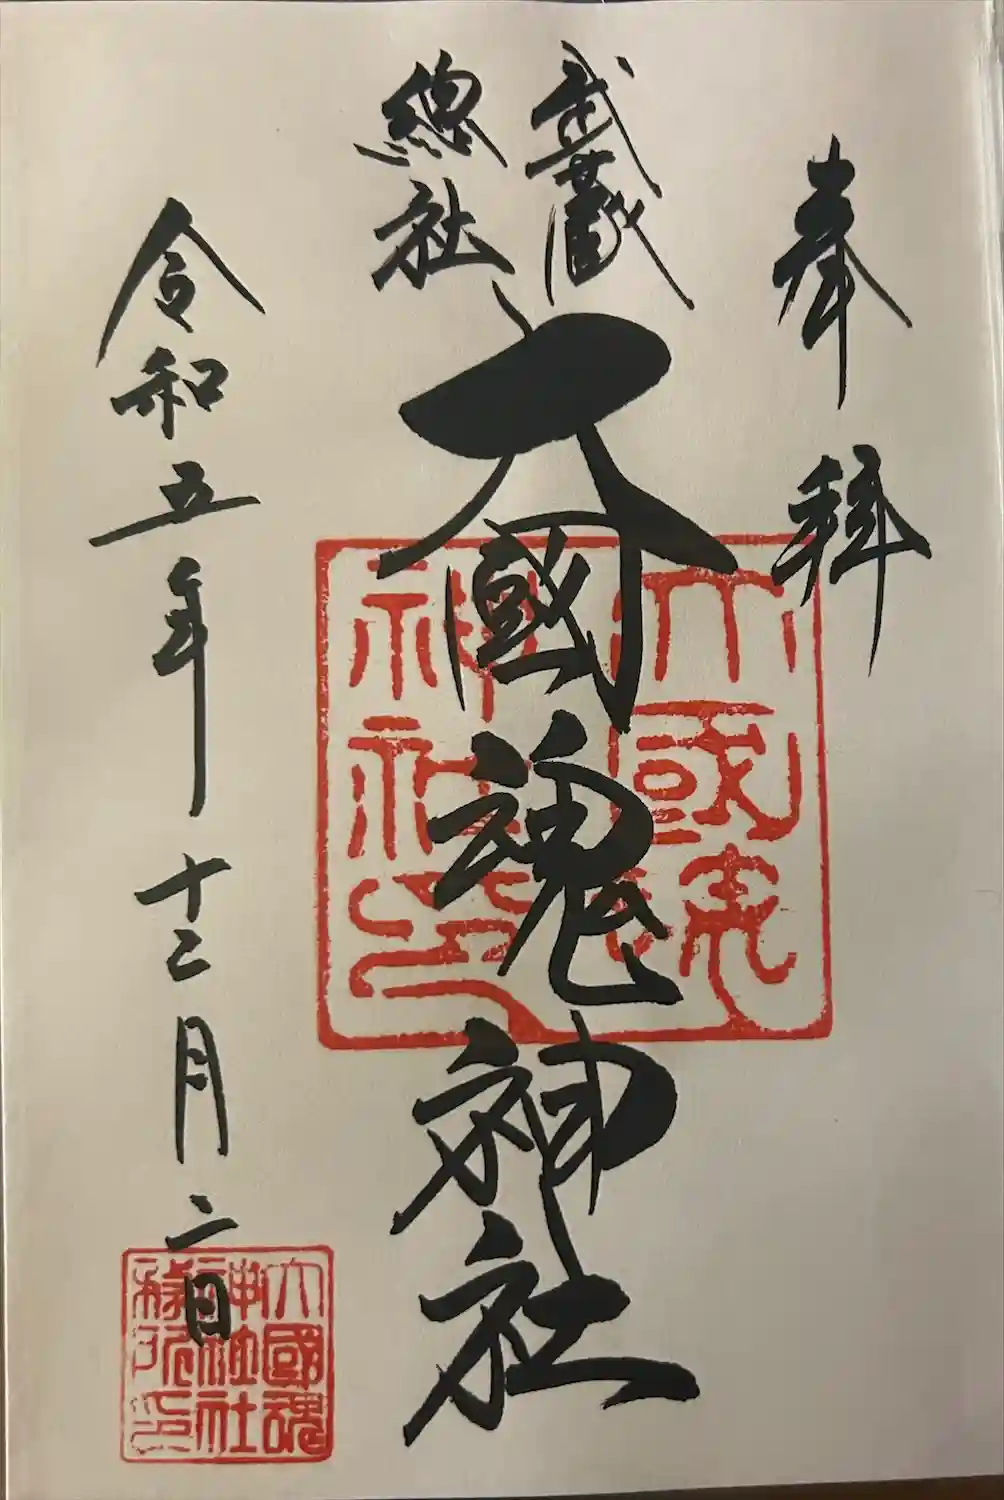 奉拝
武蔵
總社
大國魂神社
令和五年十二月二日
大國魂
神社印
大國魂
神社
務所印